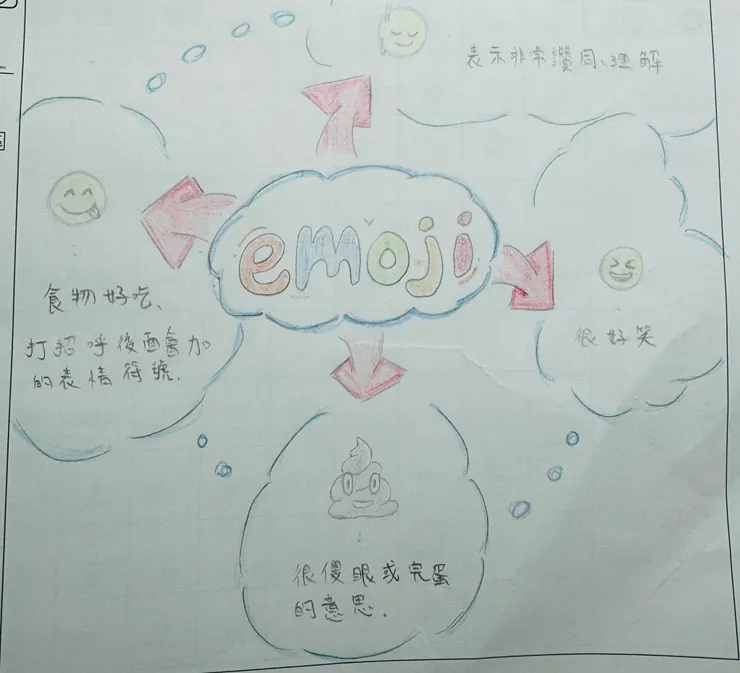 表示非常讚同、理解
emoji
食物好吃、
打招呼後面會加
的表情符號.
很好笑
很傻眼或完蛋
的意思.